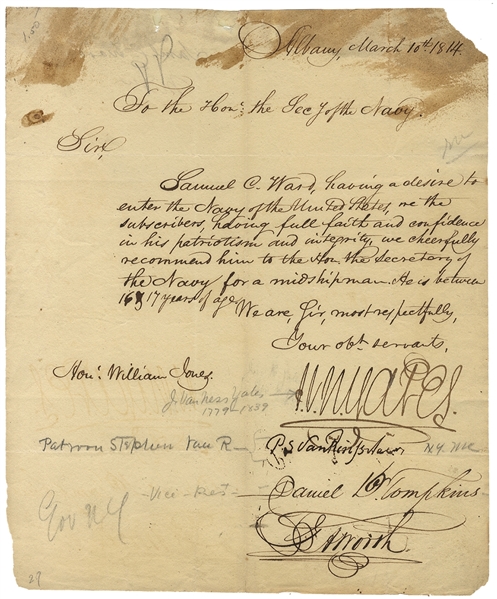 1.50
Albany, March 10th 1814
To the Hon: the Secy of the Navy.
Sir,
Samuel C. Ward, having a desire to
enter the Navy of the United States, we the
subscribers, having full faith and confidence
in his patriotism and integrity, we cheerfully
recommend him to the Hon. the Secretary of
the Navy for a midshipman. He is between
16 & 17 years of age.
We are, Sir, most respectfully,
Your obt. servants,
Hon: William Jones.
J. Van Ness Yates
1779-1839
J. V. N. Yates.
Patroon Stephen Van R
P. S. Van Rensselaer
Vice-Pres-
Daniel D. Tompkins
Gov NY